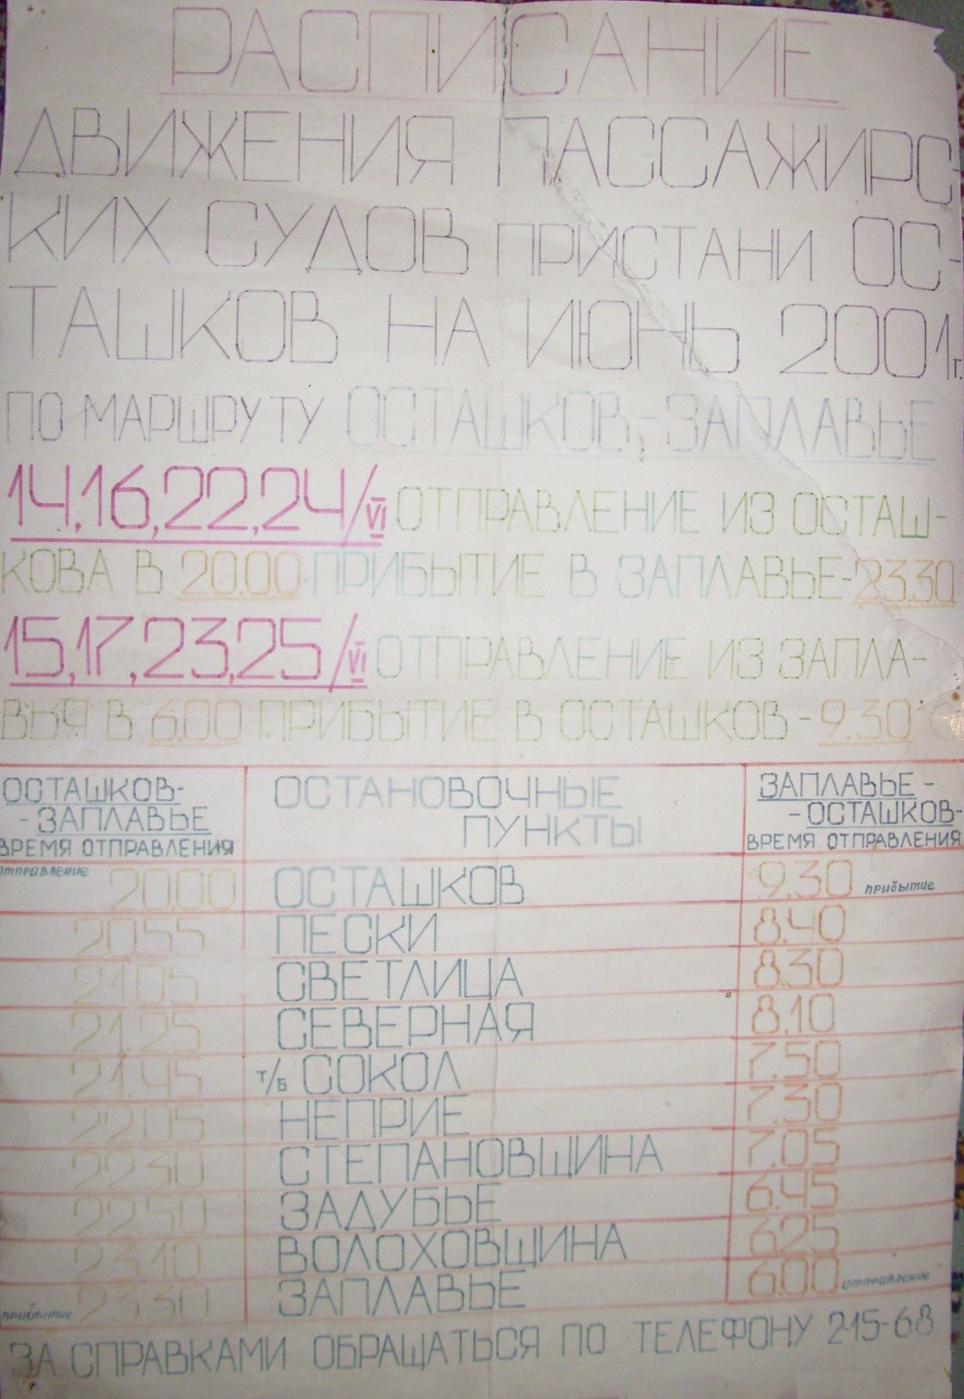 РАСПИСАНИЕ
ДВИЖЕНИЯ ПАССАЖИРС-
КИХ СУДОВ ПРИСТАНИ ОС-
ТАШКОВ НА ИЮНЬ 2001г.
ПО МАРШРУТУ ОСТАШКОВ-ЗАПЛАВЬЕ
14,16,22,24/VI ОТПРАВЛЕНИЕ ИЗ ОСТАШ-
КОВА В 20.00 ПРИБЫТИЕ В ЗАПЛАВЬЕ-23.30
15,17,23,25/VI ОТПРАВЛЕНИЕ ИЗ ЗАПЛА-
ВЬЯ В 6.00 ПРИБЫТИЕ В ОСТАШКОВ-9.30
ОСТАШКОВ- ОСТАНОВОЧНЫЕ ЗАПЛАВЬЕ-
-ЗАПЛАВЬЕ ПУНКТЫ -ОСТАШКОВ-
ВРЕМЯ ОТПРАВЛЕНИЯ ВРЕМЯ ОТПРАВЛЕНИЯ
отправление 20.00 ОСТАШКОВ 9.30 прибытие
20.55 ПЕСКИ 8.40
21.05 СВЕТЛИЦА 8.30
21.25 СЕВЕРНАЯ 8.10
21.45 т/Б СОКОЛ 7.50
22.05 НЕПРИЕ 7.30
22.30 СТЕПАНОВЩИНА 7.05
22.50 ЗАДУБЬЕ 6.45
23.10 ВОЛОХОВЩИНА 6.25
прибытие 23.30 ЗАПЛАВЬЕ 6.00 отправление
ЗА СПРАВКАМИ ОБРАЩАТЬСЯ ПО ТЕЛЕФОНУ 2-15-68